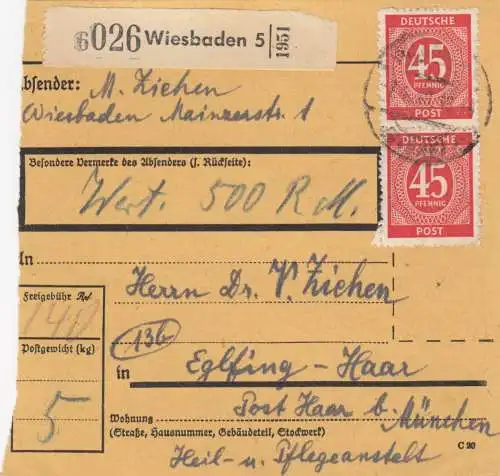 6026 Wiesbaden 5 1951
DEUTSCHE
45
PFENNIG
POST
DEUTSCHE
45
PFENNIG
POST
Absender: M. Ziehen
Wiesbaden Mainzerstr. 1
Besondere Vermerke des Absenders (s. Rückseite):
Wert. 500 R.M.
In
Herrn Dr. V. Ziehen
Freigebühr RM
13b
Postgewicht (kg)
in Eglfing-Haar
5
Post Haar b. München
Wohnung
(Straße, Hausnummer, Gebäudeteil, Stockwerk)
C 20
Heil- u. Pflegeanstalt